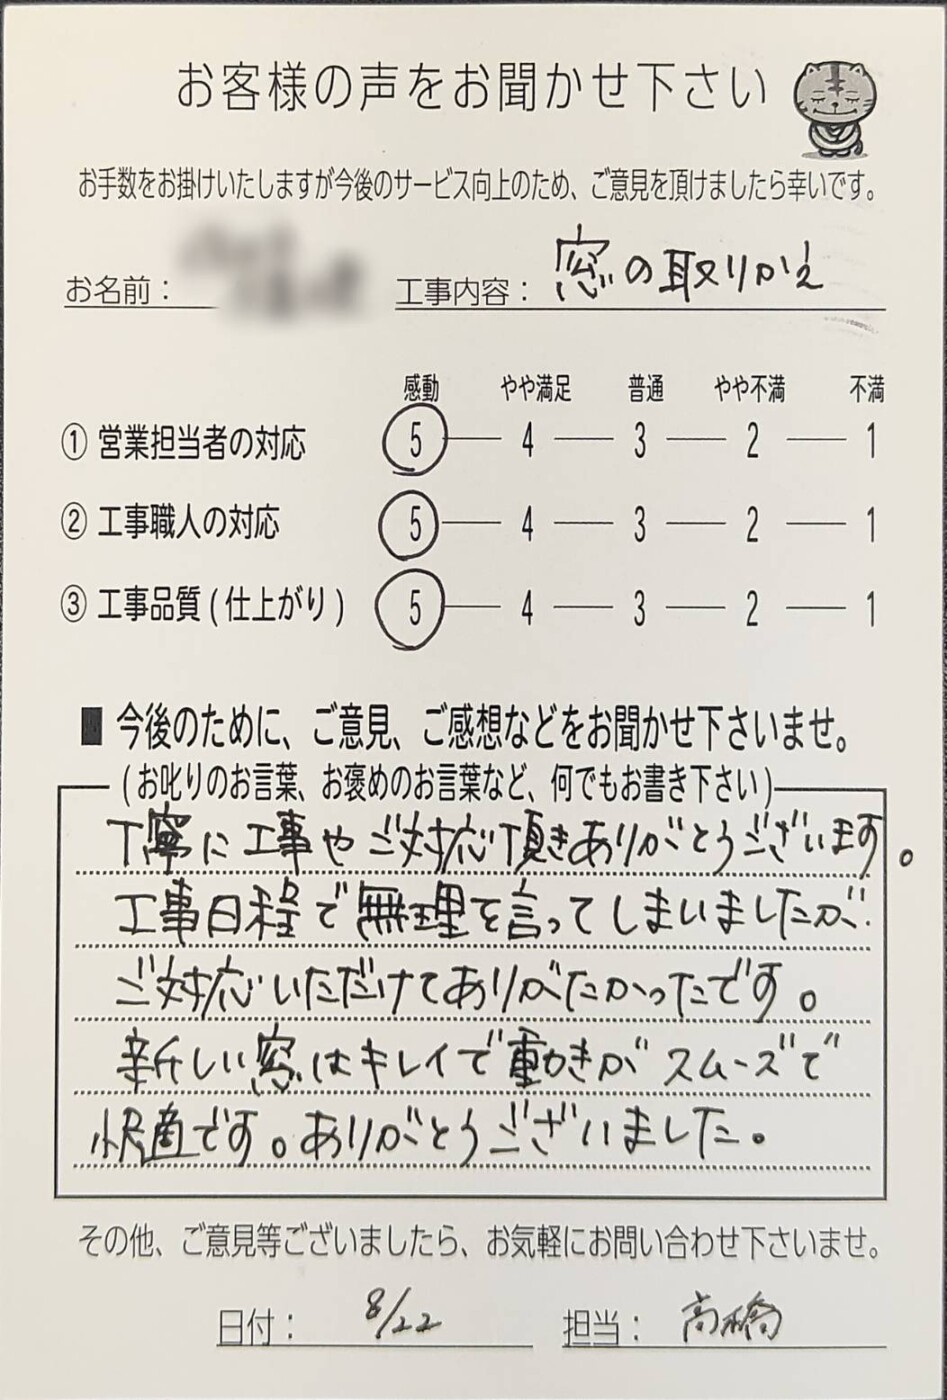 お客様の声をお聞かせ下さい
お手数をお掛けいたしますが今後のサービス向上のため、ご意見を頂けましたら幸いです。
お名前： 工事内容： 窓の取りかえ
感動 やや満足 普通 やや不満 不満
① 営業担当者の対応 5 4 3 2 1
② 工事職人の対応 5 4 3 2 1
③ 工事品質(仕上がり) 5 4 3 2 1
■ 今後のために、ご意見、ご感想などをお聞かせ下さいませ。
(お叱りのお言葉、お褒めのお言葉など、何でもお書き下さい)
丁寧に工事やご対応頂きありがとうございます。
工事日程で無理を言ってしまいましたが
ご対応いただけてありがたかったです。
新しい窓はキレイで動きがスムーズで
快適です。ありがとうございました。
その他、ご意見等ございましたら、お気軽にお問い合わせ下さいませ。
日付： 8/22 担当： 高橋